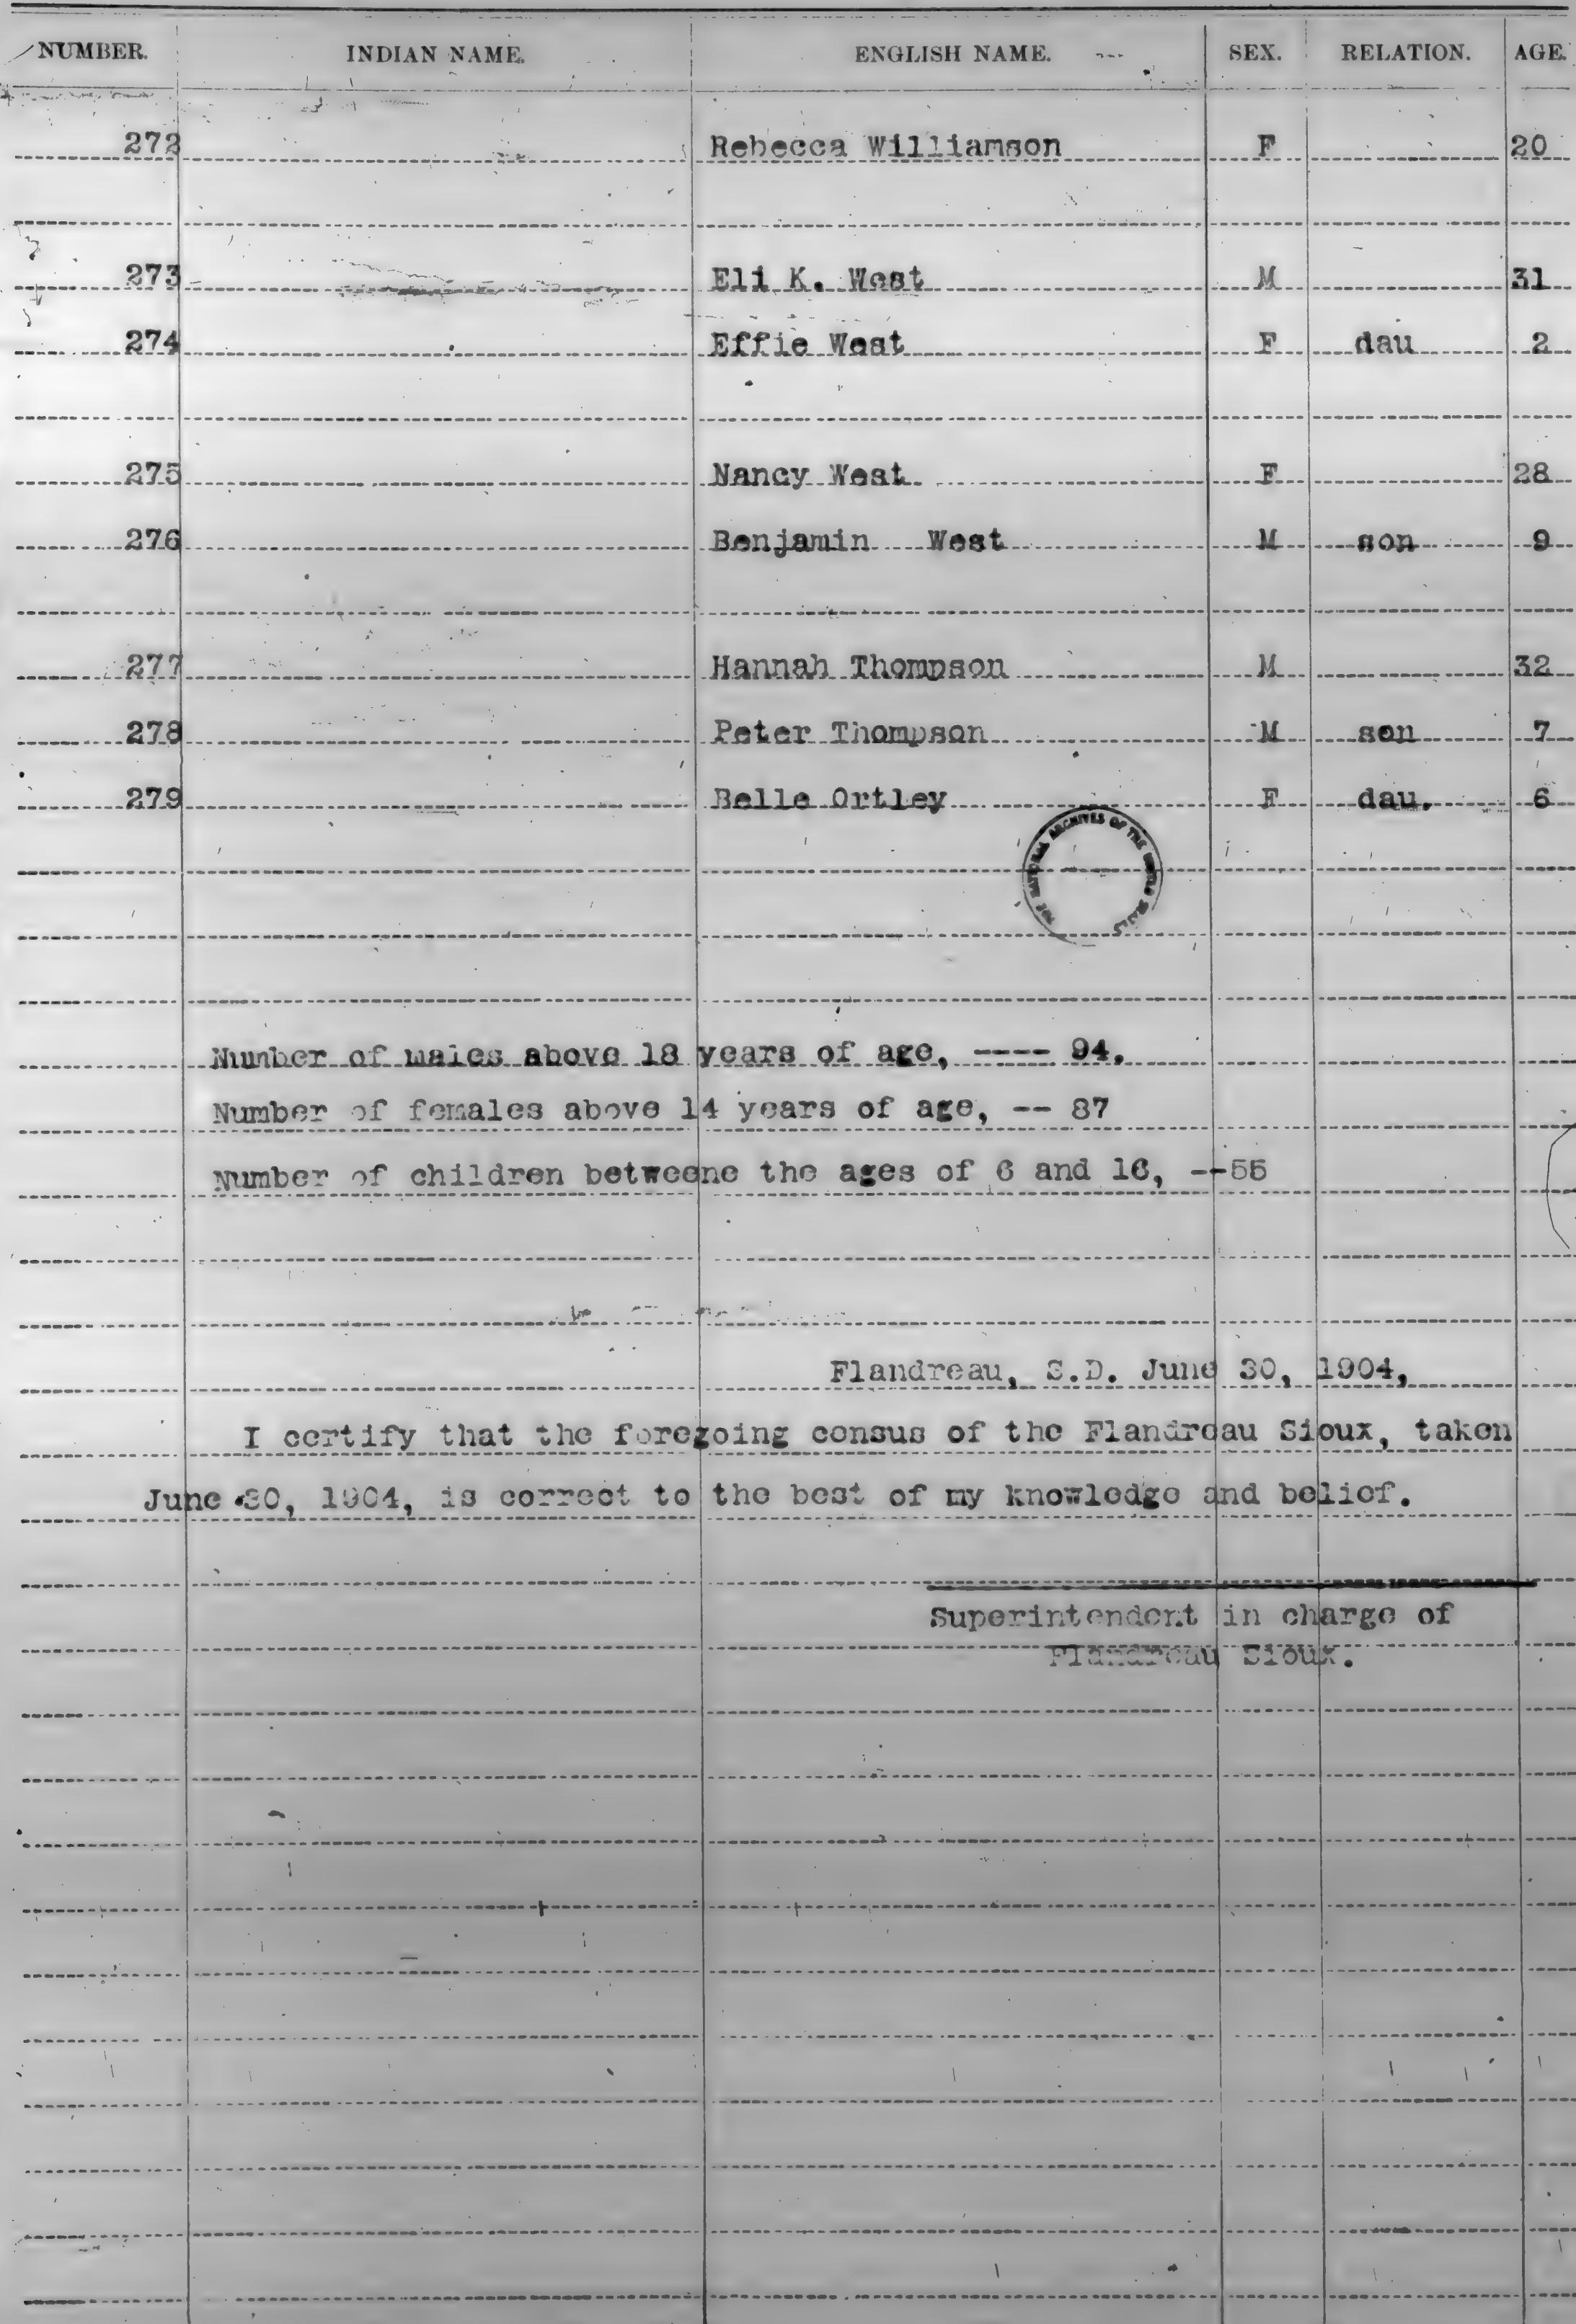 NUMBER. INDIAN NAME. ENGLISH NAME. SEX. RELATION. AGE.
272 Rebecca Williamson F 20
273 Eli K. West M 31
274 Effie West F dau 2
275 Nancy West F 28
276 Benjamin West M son 9
277 Hannah Thompson M 32
278 Peter Thompson M son 7
279 Belle Ortley F dau. 6
THE NATIONAL ARCHIVES OF THE UNITED STATES
Number of males above 18 years of age, ---- 94.
Number of females above 14 years of age, -- 87
Number of children betweene the ages of 6 and 16, --55
Flandreau, S.D. June 30, 1904,
I certify that the foregoing census of the Flandreau Sioux, taken
June 30, 1904, is correct to the best of my knowledge and belief.
Superintendent in charge of
Flandreau Sioux.